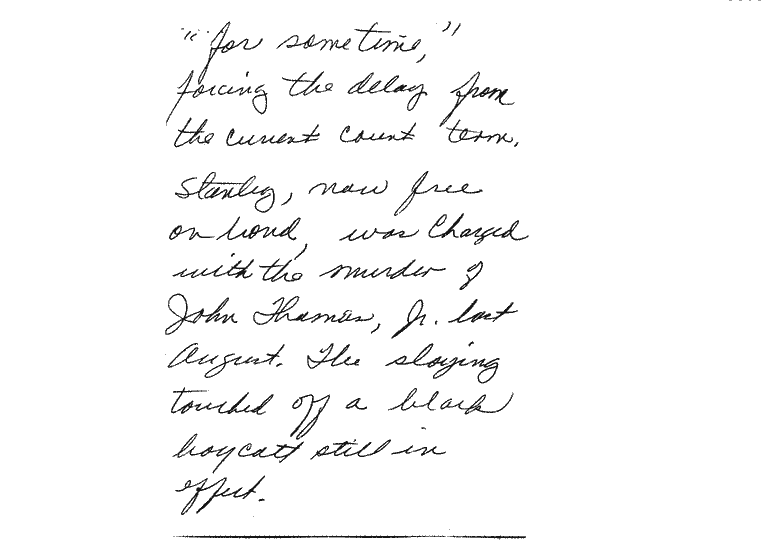 "for sometime,"
forcing the delay from
the current court term.
Stanley, now free
on bond, was charged
with the murder of
John Thomas, Jr. last
August. The slaying
touched off a black
boycott still in
effect.